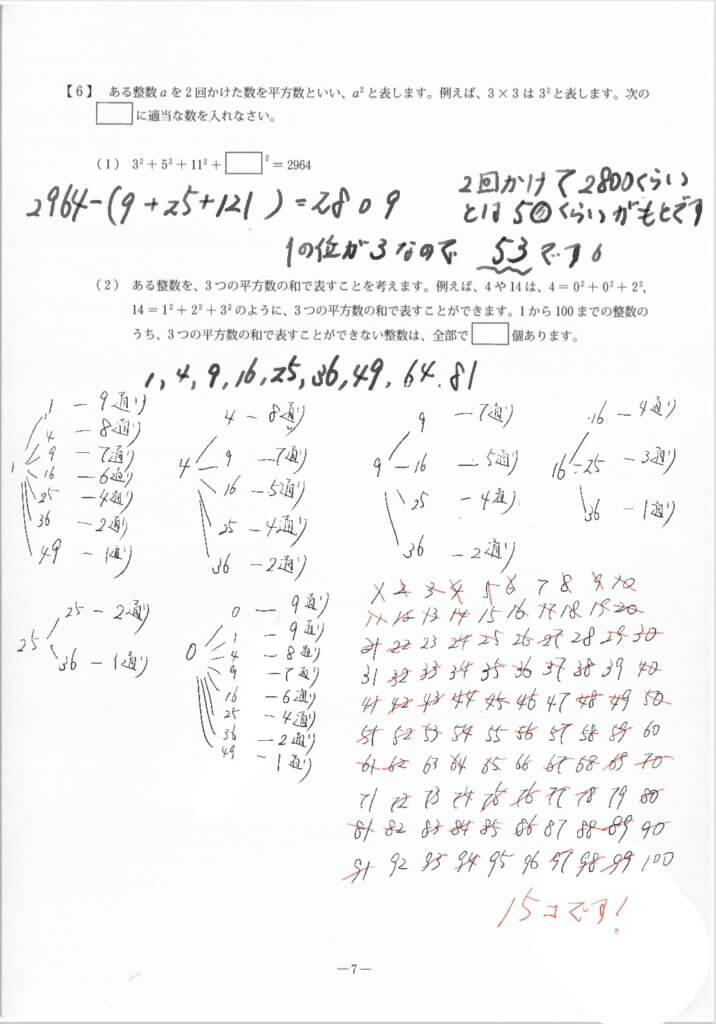 【6】 ある整数 a を2回かけた数を平方数といい、a² と表します。例えば、3×3 は 3² と表します。次の
□に適当な数を入れなさい。
(1) 3²+5²+11²+□²=2964
2964-(9+25+121)=2809
2回かけて2800くらい
とは50くらいがもとです
1の位が3なので 53です。
(2) ある整数を、3つの平方数の和で表すことを考えます。例えば、4や14は、4=0²+0²+2²,
14=1²+2²+3²のように、3つの平方数の和で表すことができます。1から100までの整数の
うち、3つの平方数の和で表すことができない整数は、全部で□個あります。
1, 4, 9, 16, 25, 36, 49, 64, 81
1
1 - 9通り
4 - 8通り
9 - 7通り
16 - 6通り
25 - 4通り
36 - 2通り
49 - 1通り
4
4 - 8通り
9 - 7通り
16 - 5通り
25 - 4通り
36 - 2通り
9
9 - 7通り
16 - 5通り
25 - 4通り
36 - 2通り
16
16 - 4通り
25 - 3通り
36 - 1通り
25
25 - 2通り
36 - 1通り
0
0 - 9通り
1 - 9通り
4 - 8通り
9 - 7通り
16 - 6通り
25 - 4通り
36 - 2通り
49 - 1通り
1 2 3 4 5 6 7 8 9 10
11 12 13 14 15 16 17 18 19 20
21 22 23 24 25 26 27 28 29 30
31 32 33 34 35 36 37 38 39 40
41 42 43 44 45 46 47 48 49 50
51 52 53 54 55 56 57 58 59 60
61 62 63 64 65 66 67 68 69 70
71 72 73 74 75 76 77 78 79 80
81 82 83 84 85 86 87 88 89 90
91 92 93 94 95 96 97 98 99 100
15コです!
—7—